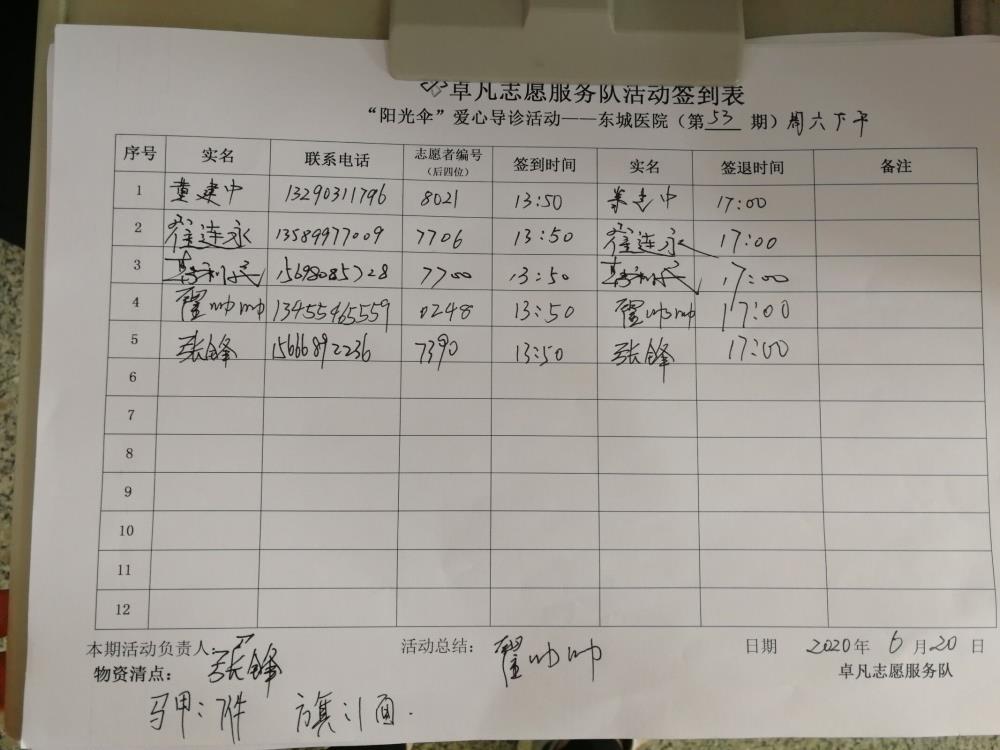 卓凡志愿服务队活动签到表
“阳光伞”爱心导诊活动——东城医院（第 53 期）周六下午
序号 实名 联系电话 志愿者编号（后四位） 签到时间 实名 签退时间 备注
1 董建中 13290311796 8021 13:50 董建中 17:00
2 崔连永 13589977009 7706 13:50 崔连永 17:00
3 韩利民 15698085728 7700 13:50 韩利民 17:00
4 翟帅帅 13455465559 0248 13:50 翟帅帅 17:00
5 张锋 15666892236 7390 13:50 张锋 17:00
6
7
8
9
10
11
12
本期活动负责人：张锋 活动总结：翟帅帅 日期 2020年 6月20日
物资清点： 卓凡志愿服务队
马甲：7件 旗：1面.